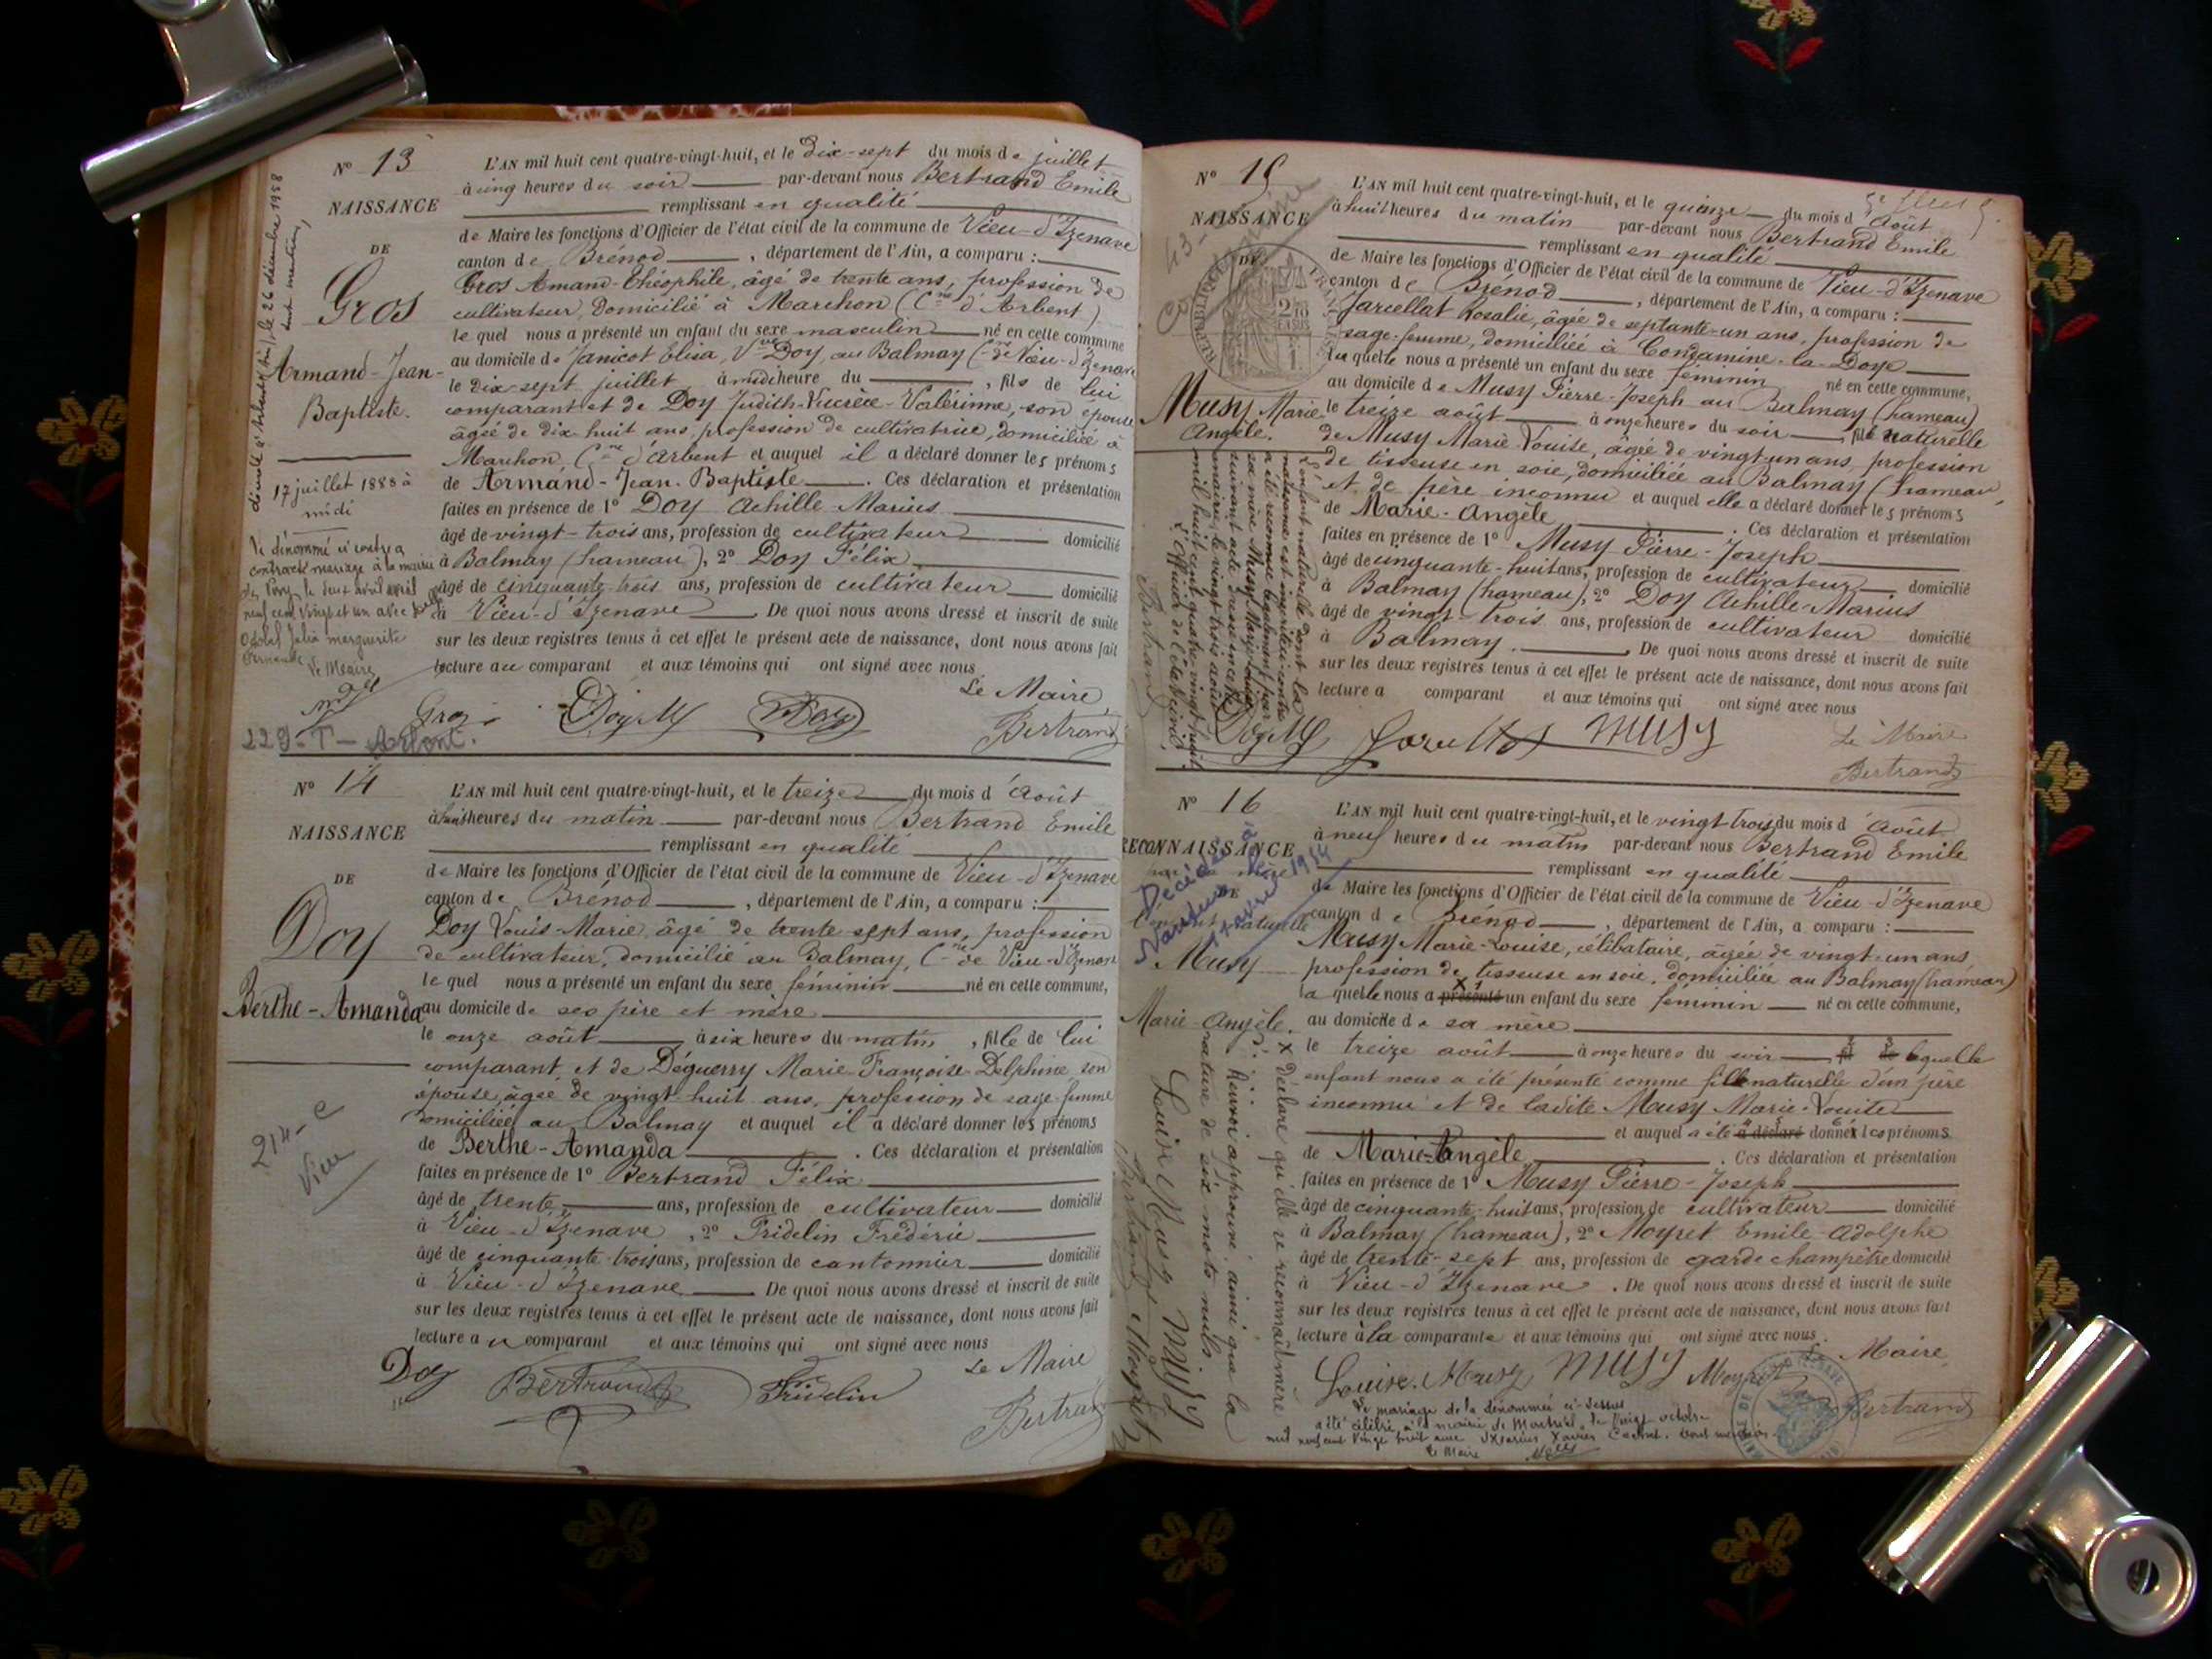 N° 13
NAISSANCE
DE
Gros
Armand-Jean-
Baptiste.
17 juillet 1888 à
midi
décédé à le 26 décembre 1958
dont mention,
Le dénommé ci contre a
contracté mariage à la mairie
de le deux avril mil
neuf cent vingt et un avec
Julia marguerite
Fernande
Le Maire
229 - T - Arbent.
L'AN mil huit cent quatre-vingt-huit, et le dix-sept du mois de juillet
à cinq heures du soir par-devant nous Bertrand Emile
remplissant en qualité
de Maire les fonctions d'Officier de l'état civil de la commune de Vieu-d'Izenave
canton de Brénod, département de l'Ain, a comparu :
Gros Amand-Théophile, âgé de trente ans, profession de
cultivateur, domicilié à Marchon (Cne d'Arbent)
le quel nous a présenté un enfant du sexe masculin né en cette commune
au domicile de Janicot Elisa, Vve Doy, au Balmay (Cne de Vieu-d'Izenave
le dix sept juillet à midi heure du , fils de lui
comparant et de Doy Judith-Lucrèce-Valérinne, son épouse
âgée de dix-huit ans, profession de cultivatrice, domiciliée à
Marchon, Cne d'Arbent et auquel il a déclaré donner les prénoms
de Armand-Jean-Baptiste. Ces déclaration et présentation
faites en présence de 1° Doy Achille Marius
âgé de vingt-trois ans, profession de cultivateur domicilié
à Balmay (hameau), 2° Doy Félix
âgé de cinquante-trois ans, profession de cultivateur domicilié
à Vieu-d'Izenave De quoi nous avons dressé et inscrit de suite
sur les deux registres tenus à cet effet le présent acte de naissance, dont nous avons fait
lecture au comparant et aux témoins qui ont signé avec nous
Le Maire,
Gros Doy M Doy Bertrand
N° 14
NAISSANCE
DE
Doy
Berthe-Amanda
214 - C
Vieu
L'AN mil huit cent quatre-vingt-huit, et le treize du mois d'Août
à huit heures du matin par-devant nous Bertrand Emile
remplissant en qualité
de Maire les fonctions d'Officier de l'état civil de la commune de Vieu-d'Izenave
canton de Brénod, département de l'Ain, a comparu :
Doy Louis-Marie, âgé de trente sept ans, profession
de cultivateur, domicilié au Balmay, Cne de Vieu-d'Izenave
le quel nous a présenté un enfant du sexe féminin né en cette commune,
au domicile de ses père et mère
le onze août à six heures du matin, fille de lui
comparant et de Déguerry Marie-Françoise-Delphine son
épouse, âgée de vingt-huit ans, profession de sage-femme
domiciliée au Balmay et auquel il a déclaré donner les prénoms
de Berthe-Amanda. Ces déclaration et présentation
faites en présence de 1° Bertrand Félix
âgé de trente ans, profession de cultivateur domicilié
à Vieu-d'Izenave, 2° Fridelin Frédéric
âgé de cinquante-trois ans, profession de cantonnier domicilié
à Vieu-d'Izenave De quoi nous avons dressé et inscrit de suite
sur les deux registres tenus à cet effet le présent acte de naissance, dont nous avons fait
lecture au comparant et aux témoins qui ont signé avec nous
Le Maire
Doy Bertrand Fridelin Bertrand
N° 15
NAISSANCE
DE
RÉPUBLIQUE FRANÇAISE
Musy Marie
Angèle.
L'enfant naturelle dont la
naissance est inscrite ci-contre
a été reconnue légalement par
sa mère Musy Marie Louise
suivant acte dressé en cette
mairie le vingt-trois août
mil huit cent quatre-vingt-huit.
L'Officier de l'état civil,
Bertrand
L'AN mil huit cent quatre-vingt-huit, et le quinze du mois d'Août
à huit heures du matin par-devant nous Bertrand Emile
remplissant en qualité
de Maire les fonctions d'Officier de l'état civil de la commune de Vieu-d'Izenave
canton de Brénod, département de l'Ain, a comparu :
Jarcellat Rosalie, âgée de septante-un ans, profession de
sage-femme, domiciliée à Condamine-la-Doye
la quelle nous a présenté un enfant du sexe féminin né en cette commune,
au domicile de Musy Pierre-Joseph au Balmay (hameau)
le treize août à onze heures du soir, fille naturelle
de Musy Marie Louise, âgée de vingt-un ans, profession
de tisseuse en soie, domiciliée au Balmay (hameau)
et de père inconnu et auquel elle a déclaré donner les prénoms
de Marie-Angèle. Ces déclaration et présentation
faites en présence de 1° Musy Pierre-Joseph
âgé de cinquante-huit ans, profession de cultivateur domicilié
à Balmay (hameau), 2° Doy Achille-Marius
âgé de vingt-trois ans, profession de cultivateur domicilié
à Balmay. De quoi nous avons dressé et inscrit de suite
sur les deux registres tenus à cet effet le présent acte de naissance, dont nous avons fait
lecture a comparant et aux témoins qui ont signé avec nous
Le Maire
Doy M MUSY Bertrand
N° 16
RECONNAISSANCE
DE
naturelle
Musy
Marie-Angèle.
Décédée à
Nantua
11 avril 1954
X déclare qu'elle se reconnait mère
Renvoi approuvé, ainsi que la
rature de six mots nuls.
Louise Musy MUSY
Bertrand Moyret
L'AN mil huit cent quatre-vingt-huit, et le vingt trois du mois d'Août
à neuf heures du matin par-devant nous Bertrand Emile
remplissant en qualité
de Maire les fonctions d'Officier de l'état civil de la commune de Vieu-d'Izenave
canton de Brénod, département de l'Ain, a comparu :
Musy Marie-Louise, célibataire, âgée de vingt-un ans
profession de tisseuse en soie, domiciliée au Balmay (hameau)
la quelle nous a présenté un enfant du sexe féminin né en cette commune,
au domicile de sa mère
le treize août à onze heures du soir fil de laquelle
enfant nous a été présenté comme fille naturelle d'un père
inconnu et de ladite Musy Marie-Louise
et auquel a été a déclaré donné les prénoms
de Marie-Angèle. Ces déclaration et présentation
faites en présence de 1° Musy Pierre-Joseph
âgé de cinquante-huit ans, profession de cultivateur domicilié
à Balmay (hameau), 2° Moyret Emile-Adolphe
âgé de trente-sept ans, profession de garde champêtre domicilié
à Vieu-d'Izenave. De quoi nous avons dressé et inscrit de suite
sur les deux registres tenus à cet effet le présent acte de naissance, dont nous avons fait
lecture à la comparante et aux témoins qui ont signé avec nous.
Le Maire,
Louise Musy MUSY Moyret Bertrand
Le mariage de la dénommée ci-dessus
a été célébré à la mairie de Montréal, le vingt octobre
mil neuf cent vingt huit avec Xavier dont mention.
Le Maire